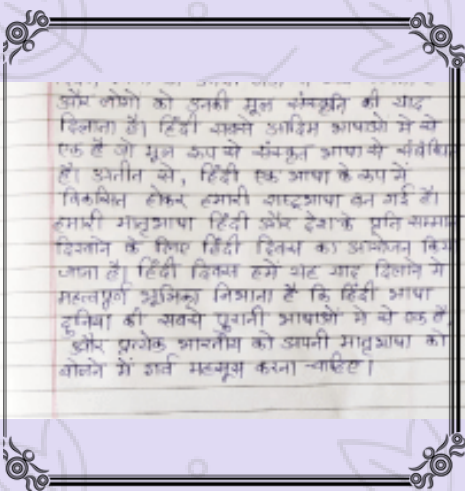 और लोगों को उनकी मूल संस्कृति की याद
दिलाना है। हिंदी सबसे आदिम भाषाओं में से
एक है जो मूल रूप से संस्कृत भाषा से
है। अतीत से, हिंदी एक भाषा के रूप में
विकसित होकर हमारी राष्ट्रभाषा बन गई है।
हमारी मातृभाषा हिंदी और देश के प्रति सम्मान
दिखाने के लिए हिंदी दिवस का आयोजन किया
जाता है। हिंदी दिवस हमें यह याद दिलाने में
महत्वपूर्ण भूमिका निभाता है कि हिंदी भाषा
दुनिया की सबसे पुरानी भाषाओं में से एक है,
और प्रत्येक भारतीय को अपनी मातृभाषा को
बोलने में गर्व महसूस करना चाहिए।